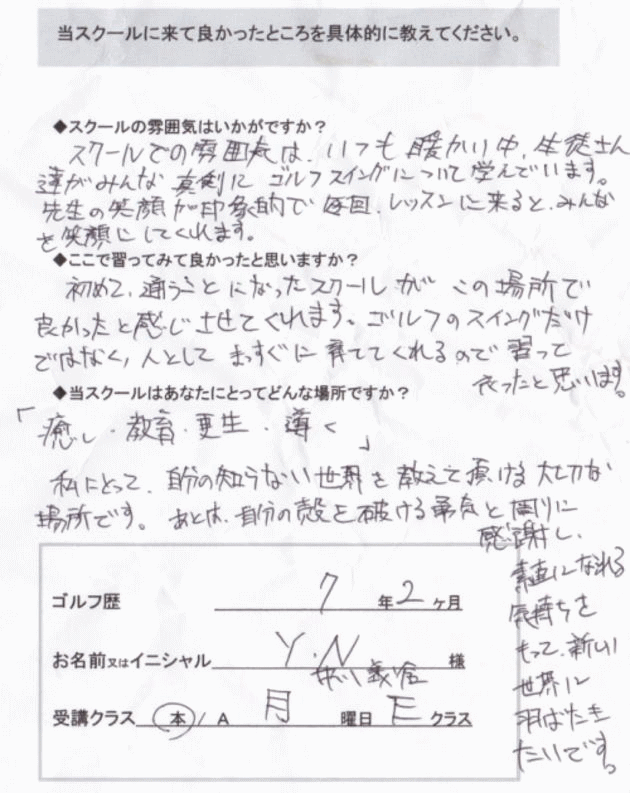 当スクールに来て良かったところを具体的に教えてください。
◆スクールの雰囲気はいかがですか？
スクールでの雰囲気は、いつも暖かい中、生徒さん
達がみんな真剣にゴルフスイングについて学んでいます。
先生の笑顔が印象的で毎回、レッスンに来ると、みんな
を笑顔にしてくれます。
◆ここで習ってみて良かったと思いますか？
初めて、通うことになったスクールがこの場所で
良かったと感じさせてくれます。ゴルフのスイングだけ
ではなく、人としてまっすぐに育ててくれるので習って
良かったと思います。
◆当スクールはあなたにとってどんな場所ですか？
「癒し・教育・更生・導く」
私にとって、自分の知らない世界を教えて頂ける大切な
場所です。あとは、自分の殻を破ける勇気と周りに
感謝し、
素直になれる
気持ちを
もって、新しい
世界に
羽ばたき
たいです。
ゴルフ歴 7 年 2 ヶ月
お名前又はイニシャル Y.N 様
受講クラス 本 / A 月 曜日 E クラス